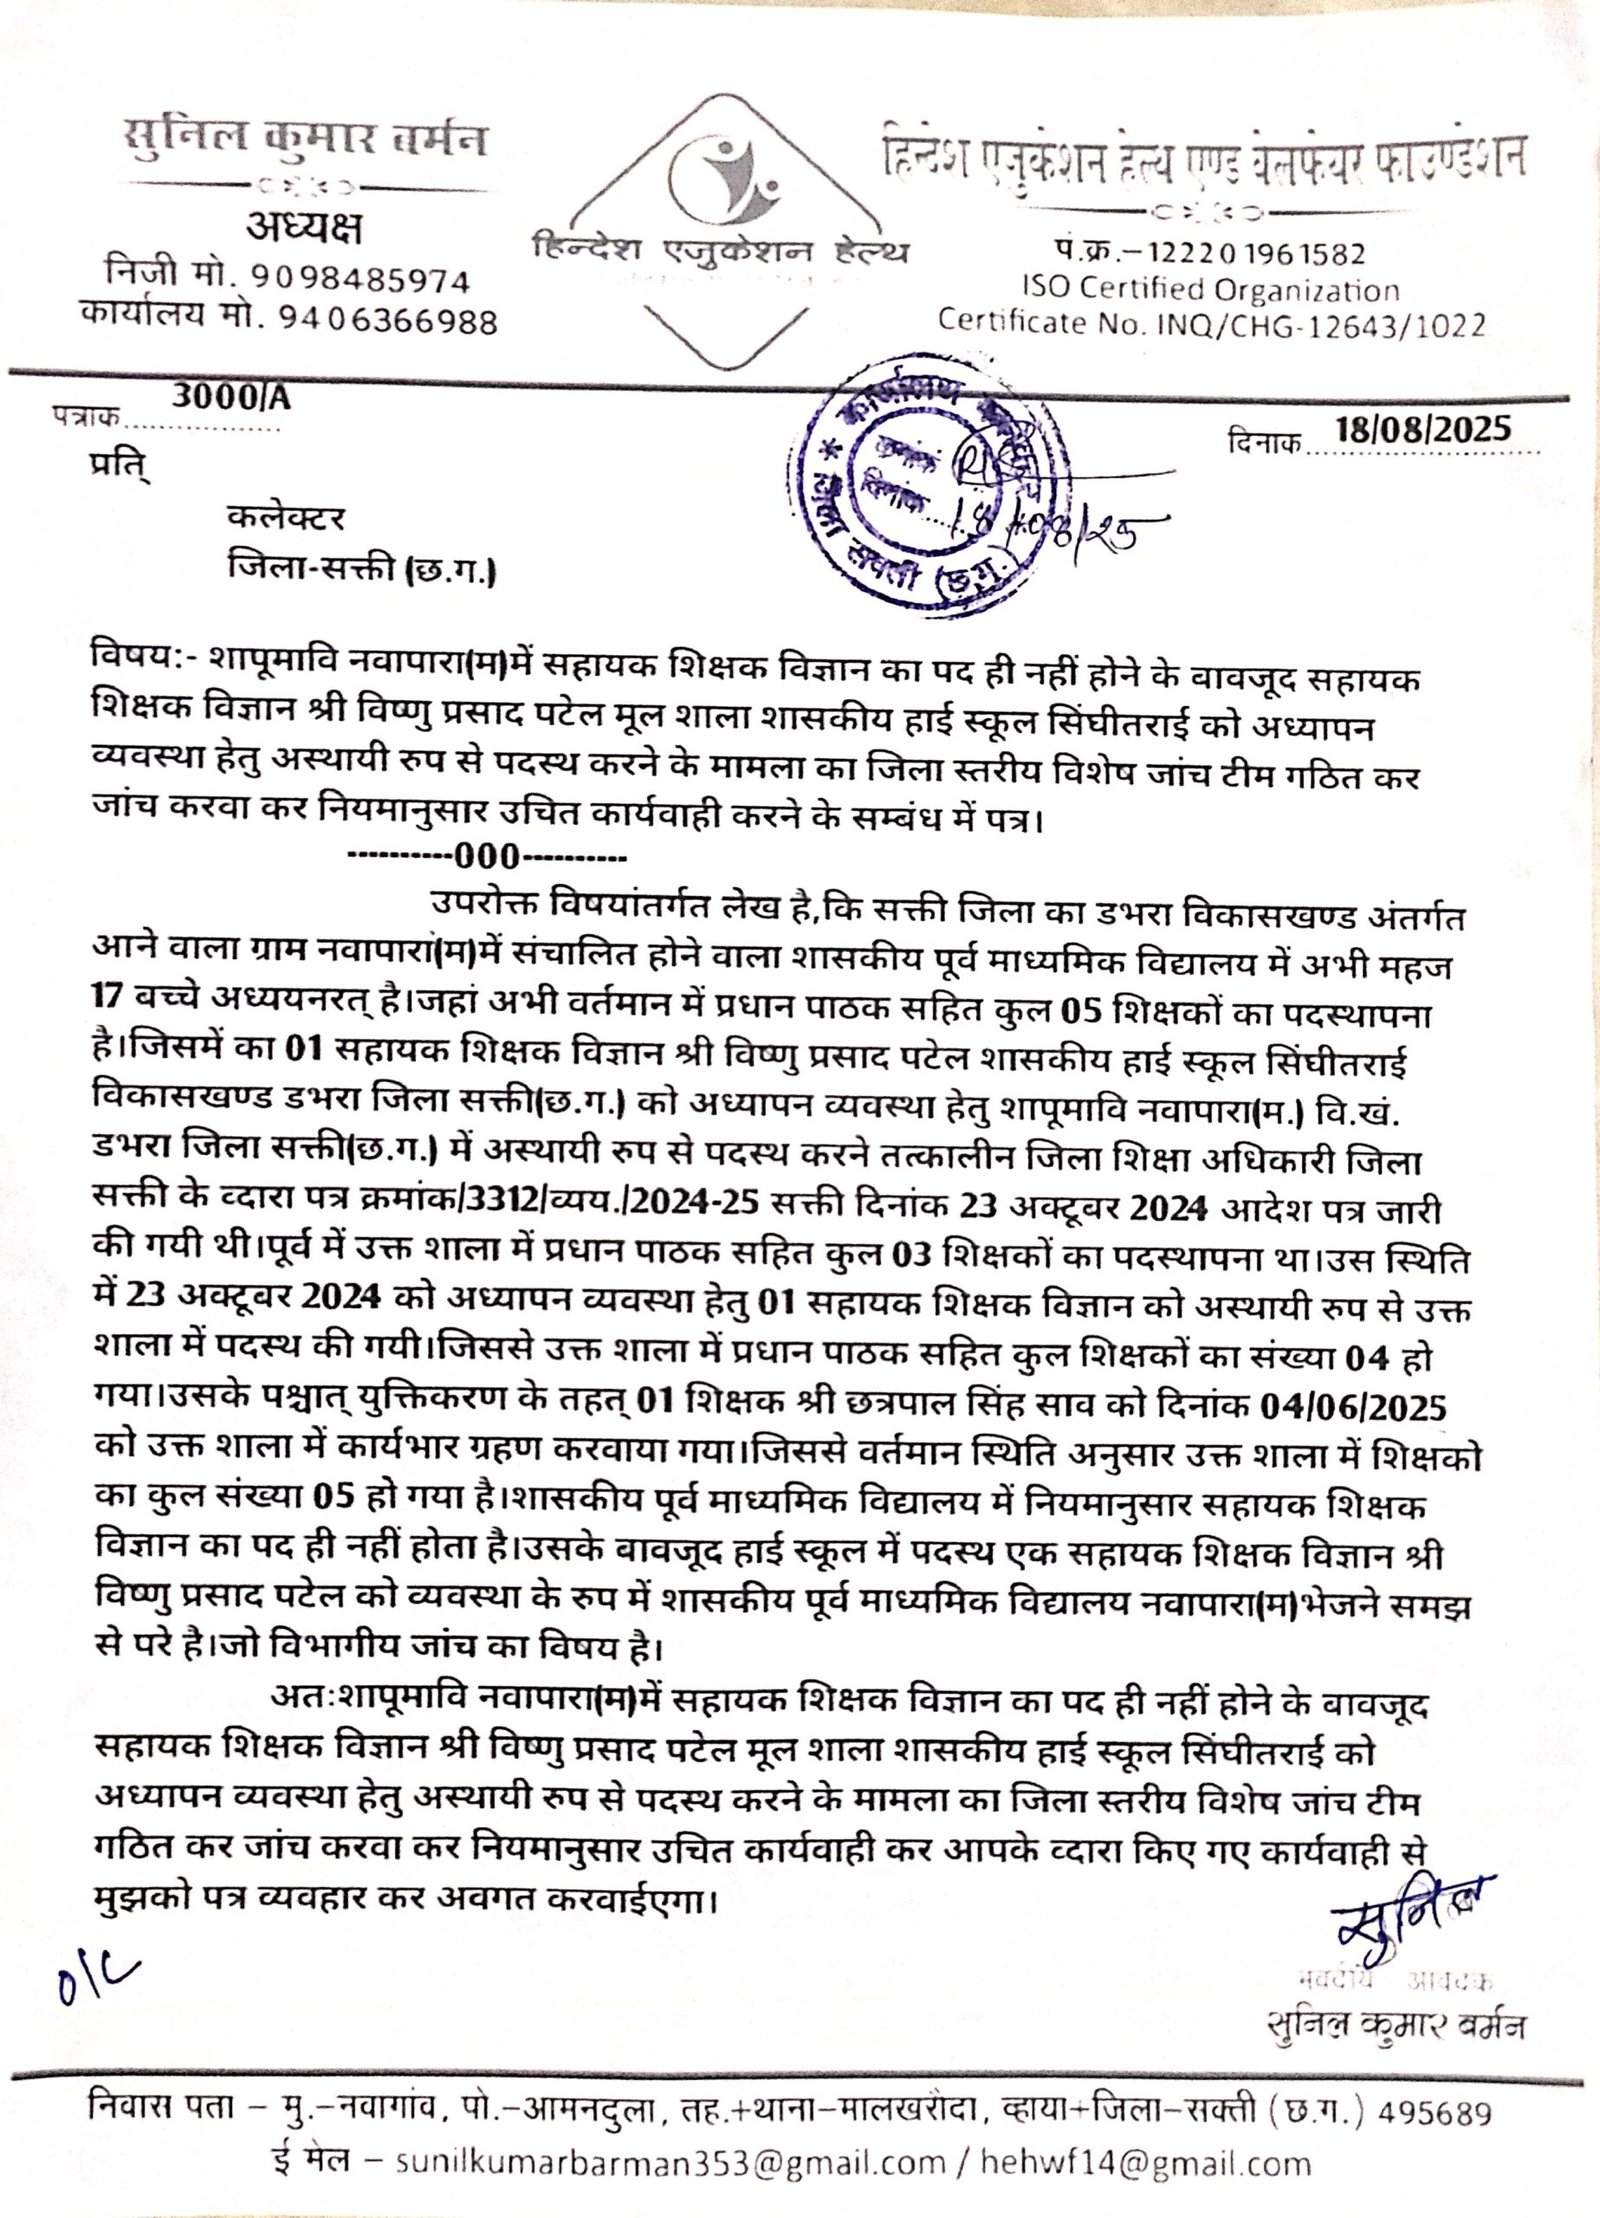 सुनिल कुमार बर्मन
अध्यक्ष
निजी मो. 9098485974
कार्यालय मो. 9406366988
हिन्देश एजुकेशन हेल्थ
हिन्देश एजुकेशन हेल्थ एण्ड वेलफेयर फाउण्डेशन
पं.क्र.–122201961582
ISO Certified Organization
Certificate No. INQ/CHG-12643/1022
पत्राक 3000/A
दिनाक 18/08/2025
कार्यालय कलेक्टर
जिला सक्ती (छ.ग.)
क्रमांक
दिनांक 18/08/25
प्रति्
कलेक्टर
जिला-सक्ती (छ.ग.)
विषय:- शापूमावि नवापारा(म)में सहायक शिक्षक विज्ञान का पद ही नहीं होने के बावजूद सहायक
शिक्षक विज्ञान श्री विष्णु प्रसाद पटेल मूल शाला शासकीय हाई स्कूल सिंघीतराई को अध्यापन
व्यवस्था हेतु अस्थायी रुप से पदस्थ करने के मामला का जिला स्तरीय विशेष जांच टीम गठित कर
जांच करवा कर नियमानुसार उचित कार्यवाही करने के सम्बंध में पत्र।
----------000----------
उपरोक्त विषयांतर्गत लेख है,कि सक्ती जिला का डभरा विकासखण्ड अंतर्गत
आने वाला ग्राम नवापारा(म)में संचालित होने वाला शासकीय पूर्व माध्यमिक विद्यालय में अभी महज
17 बच्चे अध्ययनरत् है।जहां अभी वर्तमान में प्रधान पाठक सहित कुल 05 शिक्षकों का पदस्थापना
है।जिसमें का 01 सहायक शिक्षक विज्ञान श्री विष्णु प्रसाद पटेल शासकीय हाई स्कूल सिंघीतराई
विकासखण्ड डभरा जिला सक्ती(छ.ग.) को अध्यापन व्यवस्था हेतु शापूमावि नवापारा(म.) वि.खं.
डभरा जिला सक्ती(छ.ग.) में अस्थायी रुप से पदस्थ करने तत्कालीन जिला शिक्षा अधिकारी जिला
सक्ती के व्दारा पत्र क्रमांक/3312/व्यय./2024-25 सक्ती दिनांक 23 अक्टूबर 2024 आदेश पत्र जारी
की गयी थी।पूर्व में उक्त शाला में प्रधान पाठक सहित कुल 03 शिक्षकों का पदस्थापना था।उस स्थिति
में 23 अक्टूबर 2024 को अध्यापन व्यवस्था हेतु 01 सहायक शिक्षक विज्ञान को अस्थायी रुप से उक्त
शाला में पदस्थ की गयी।जिससे उक्त शाला में प्रधान पाठक सहित कुल शिक्षकों का संख्या 04 हो
गया।उसके पश्चात् युक्तिकरण के तहत् 01 शिक्षक श्री छत्रपाल सिंह साव को दिनांक 04/06/2025
को उक्त शाला में कार्यभार ग्रहण करवाया गया।जिससे वर्तमान स्थिति अनुसार उक्त शाला में शिक्षको
का कुल संख्या 05 हो गया है।शासकीय पूर्व माध्यमिक विद्यालय में नियमानुसार सहायक शिक्षक
विज्ञान का पद ही नहीं होता है।उसके बावजूद हाई स्कूल में पदस्थ एक सहायक शिक्षक विज्ञान श्री
विष्णु प्रसाद पटेल को व्यवस्था के रुप में शासकीय पूर्व माध्यमिक विद्यालय नवापारा(म)भेजने समझ
से परे है।जो विभागीय जांच का विषय है।
अतःशापूमावि नवापारा(म)में सहायक शिक्षक विज्ञान का पद ही नहीं होने के बावजूद
सहायक शिक्षक विज्ञान श्री विष्णु प्रसाद पटेल मूल शाला शासकीय हाई स्कूल सिंघीतराई को
अध्यापन व्यवस्था हेतु अस्थायी रुप से पदस्थ करने के मामला का जिला स्तरीय विशेष जांच टीम
गठित कर जांच करवा कर नियमानुसार उचित कार्यवाही कर आपके व्दारा किए गए कार्यवाही से
मुझको पत्र व्यवहार कर अवगत करवाईएगा।
सुनिल
O/C
भवदीय आवदक
सुनिल कुमार बर्मन
निवास पता – मु.–नवागांव, पो.–आमनदुला, तह.+थाना–मालखरौदा, व्हाया+जिला–सक्ती (छ.ग.) 495689
ई मेल – sunilkumarbarman353@gmail.com / hehwf14@gmail.com